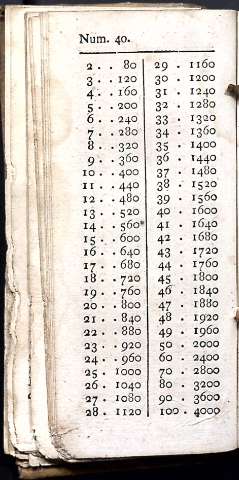 Num. 40.
2 . . 80
3 . . 120
4 . . 160
5 . . 200
6 . . 240
7 . . 280
8 . . 320
9 . . 360
10 . . 400
11 . . 440
12 . . 480
13 . . 520
14 . . 560*
15 . . 600
16 . . 640
17 . . 680
18 . . 720
19 . . 760
20 . . 800
21 . . 840
22 . . 880
23 . . 920
24 . . 960
25 . 1000
26 . 1040
27 . 1080
28 . 1120
29 . 1160
30 . 1200
31 . 1240
32 . 1280
33 . 1320
34 . 1360
35 . 1400
36 . 1440
37 . 1480
38 . 1520
39 . 1560
40 . 1600
41 . 1640
42 . 1680
43 . 1720
44 . 1760
45 . 1800
46 . 1840
47 . 1880
48 . 1920
49 . 1960
50 . 2000
60 . 2400
70 . 2800
80 . 3200
90 . 3600
100 . 4000